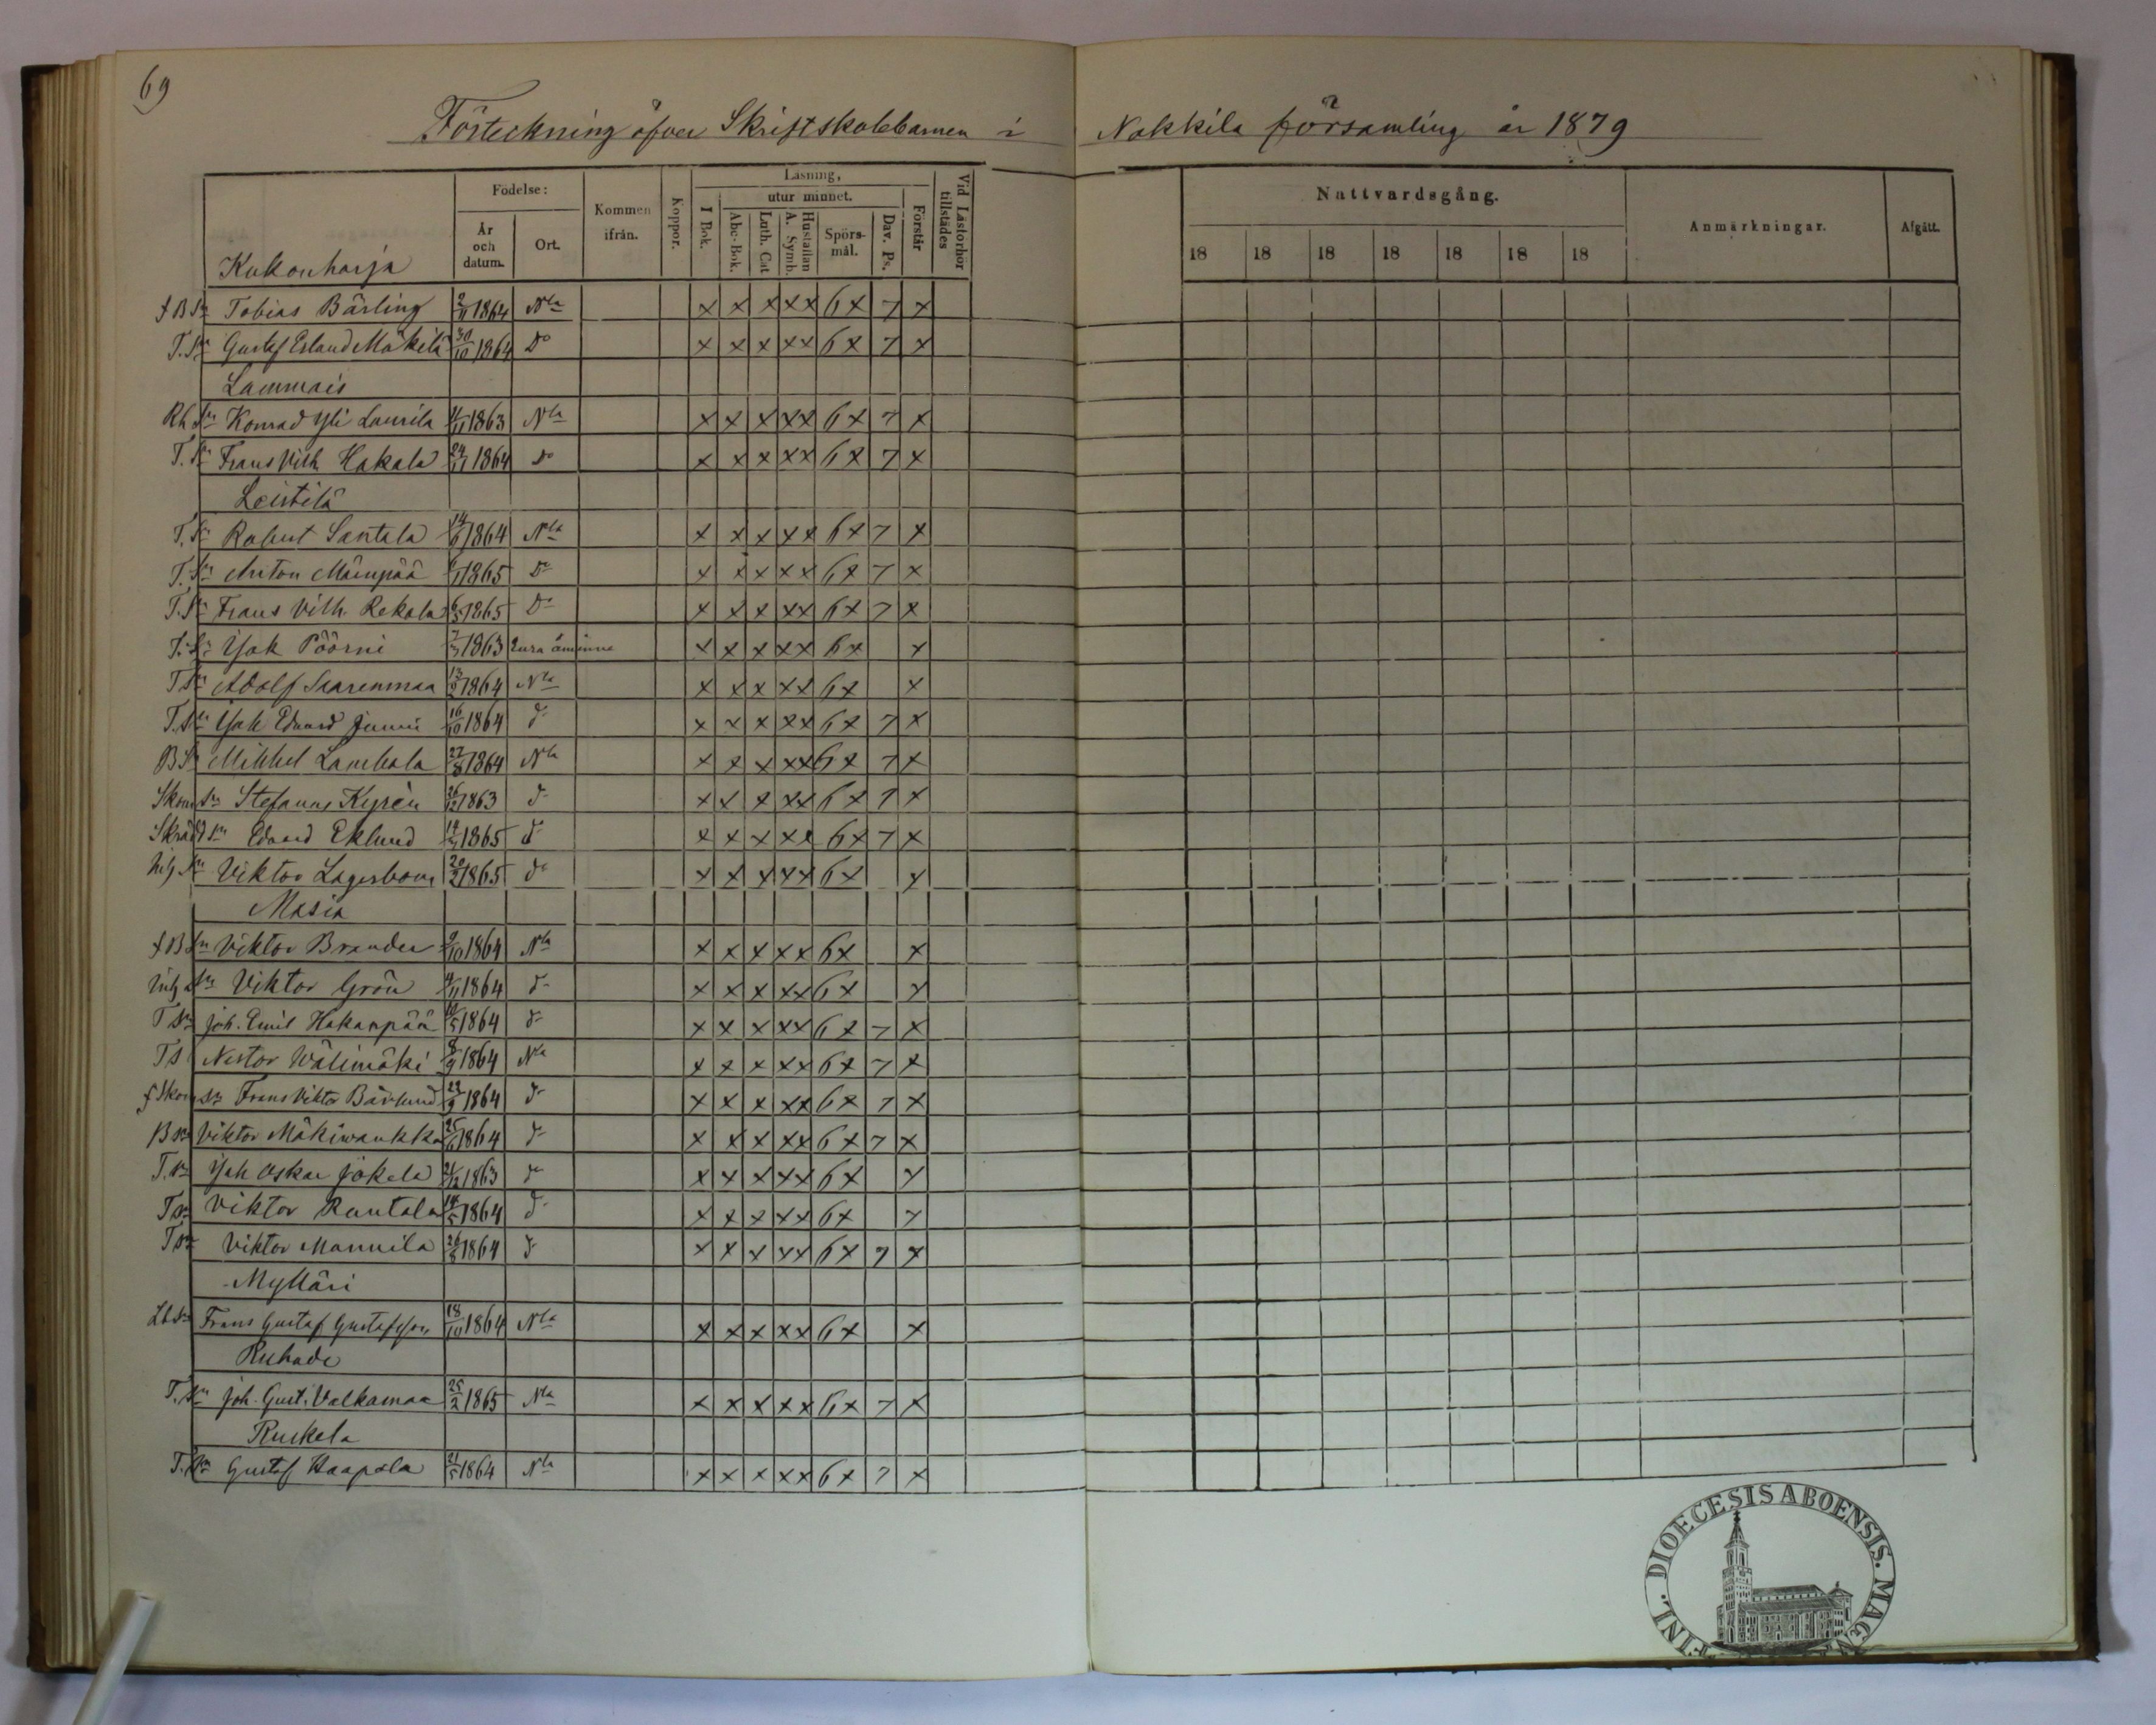 69
Förteckning öfver Skriftskolebarnen i Nakkila församling år 1879
Födelse: Kommen ifrån. Koppor. Läsning, Vid Läsförhör tillstädes Nattvardsgång. Anmärkningar. Afgått.
År och datum. Ort. I Bok. utur minnet. Förstår
Abc-Bok. Luth. Cat Hustaflan A. Symb. Spörs-mål. Dav. Ps. 18 18 18 18 18 18 18
Kukonharja
f B Sn Tobias Bärling 2/11 1864 Nla x x x x x 6 x 7 x
T. Sn Gustaf Erland Mäkilä 30/10 1864 Do x x x x x 6 x 7 x
Lammais
Rh Sn Konrad Yli Laurila 4/11 1863 Nla x x x x x 6 x 7 x
T. Sn Frans Vilh. Hakala 24/11 1864 Do x x x x x 6 x 7 x
Leistilä
T. Sn Robert Santala 14/6 1864 Nla x x x x x 6 x 7 x
T. Sn Anton Mäenpää 1865 Do x x x x x 6 x 7 x
T. Sn Frans Vilh. Rekola 6/5 1865 Do x x x x x 6 x 7 x
T. Sn Joh Pöörni 7/3 1863 Eura åminne x x x x x 6 x x
T Sn Adolf Saarenmaa 13/2 1864 Nla x x x x x 6 x x
T. Sn Joh Eduard Junni 16/10 1864 do x x x x x 6 x 7 x
B Sn Mikkel Lambala 27/8 1864 Nla x x x x x 6 x 7 x
Skom Sn Stefanus Kyrèn 26/12 1863 do x x x x x 6 x 7 x
Skrädd sn Edvard Eklund 1865 do x x x x x 6 x 7 x
Inh Sn Viktor Lagerbom 20/2 1865 do x x x x x 6 x x
Masia
f B Sn Viktor Brander 9/10 1864 Nla x x x x x 6 x x
Inh Sn Viktor Grön 4/11 1864 do x x x x x 6 x x
T Sn Joh. Emil Hakanpää 1864 do x x x x x 6 x 7 x
T S Nestor Wälimäki 8/9 1864 Nla x x x x x 6 x 7 x
f Skom sn Frans Viktor Bärlund 22/9 1864 do x x x x x 6 x 7 x
B sn Viktor Mäkiwankka 25/6 1864 do x x x x x 6 x 7 x
T. sn Joh Oskar Jokela 21/12 1863 do x x x x x 6 x x
T sn Viktor Rantala 14/5 1864 do x x x x x 6 x x
T sn Viktor Mannila 26/8 1864 do x x x x x 6 x 7 x
Mylläri
Lb sn Frans Gustaf Gustafsson 18/10 1864 Nla x x x x x 6 x x
Ruhade
T. Sn Joh. Gust. Valkamaa 25/2 1865 Nla x x x x x 6 x 7 x
Ruskela
T. Sn Gustaf Haapala 21/5 1864 Nla x x x x x 6 x 7 x
FINL. DIOECESIS ABOENSIS. MAGN